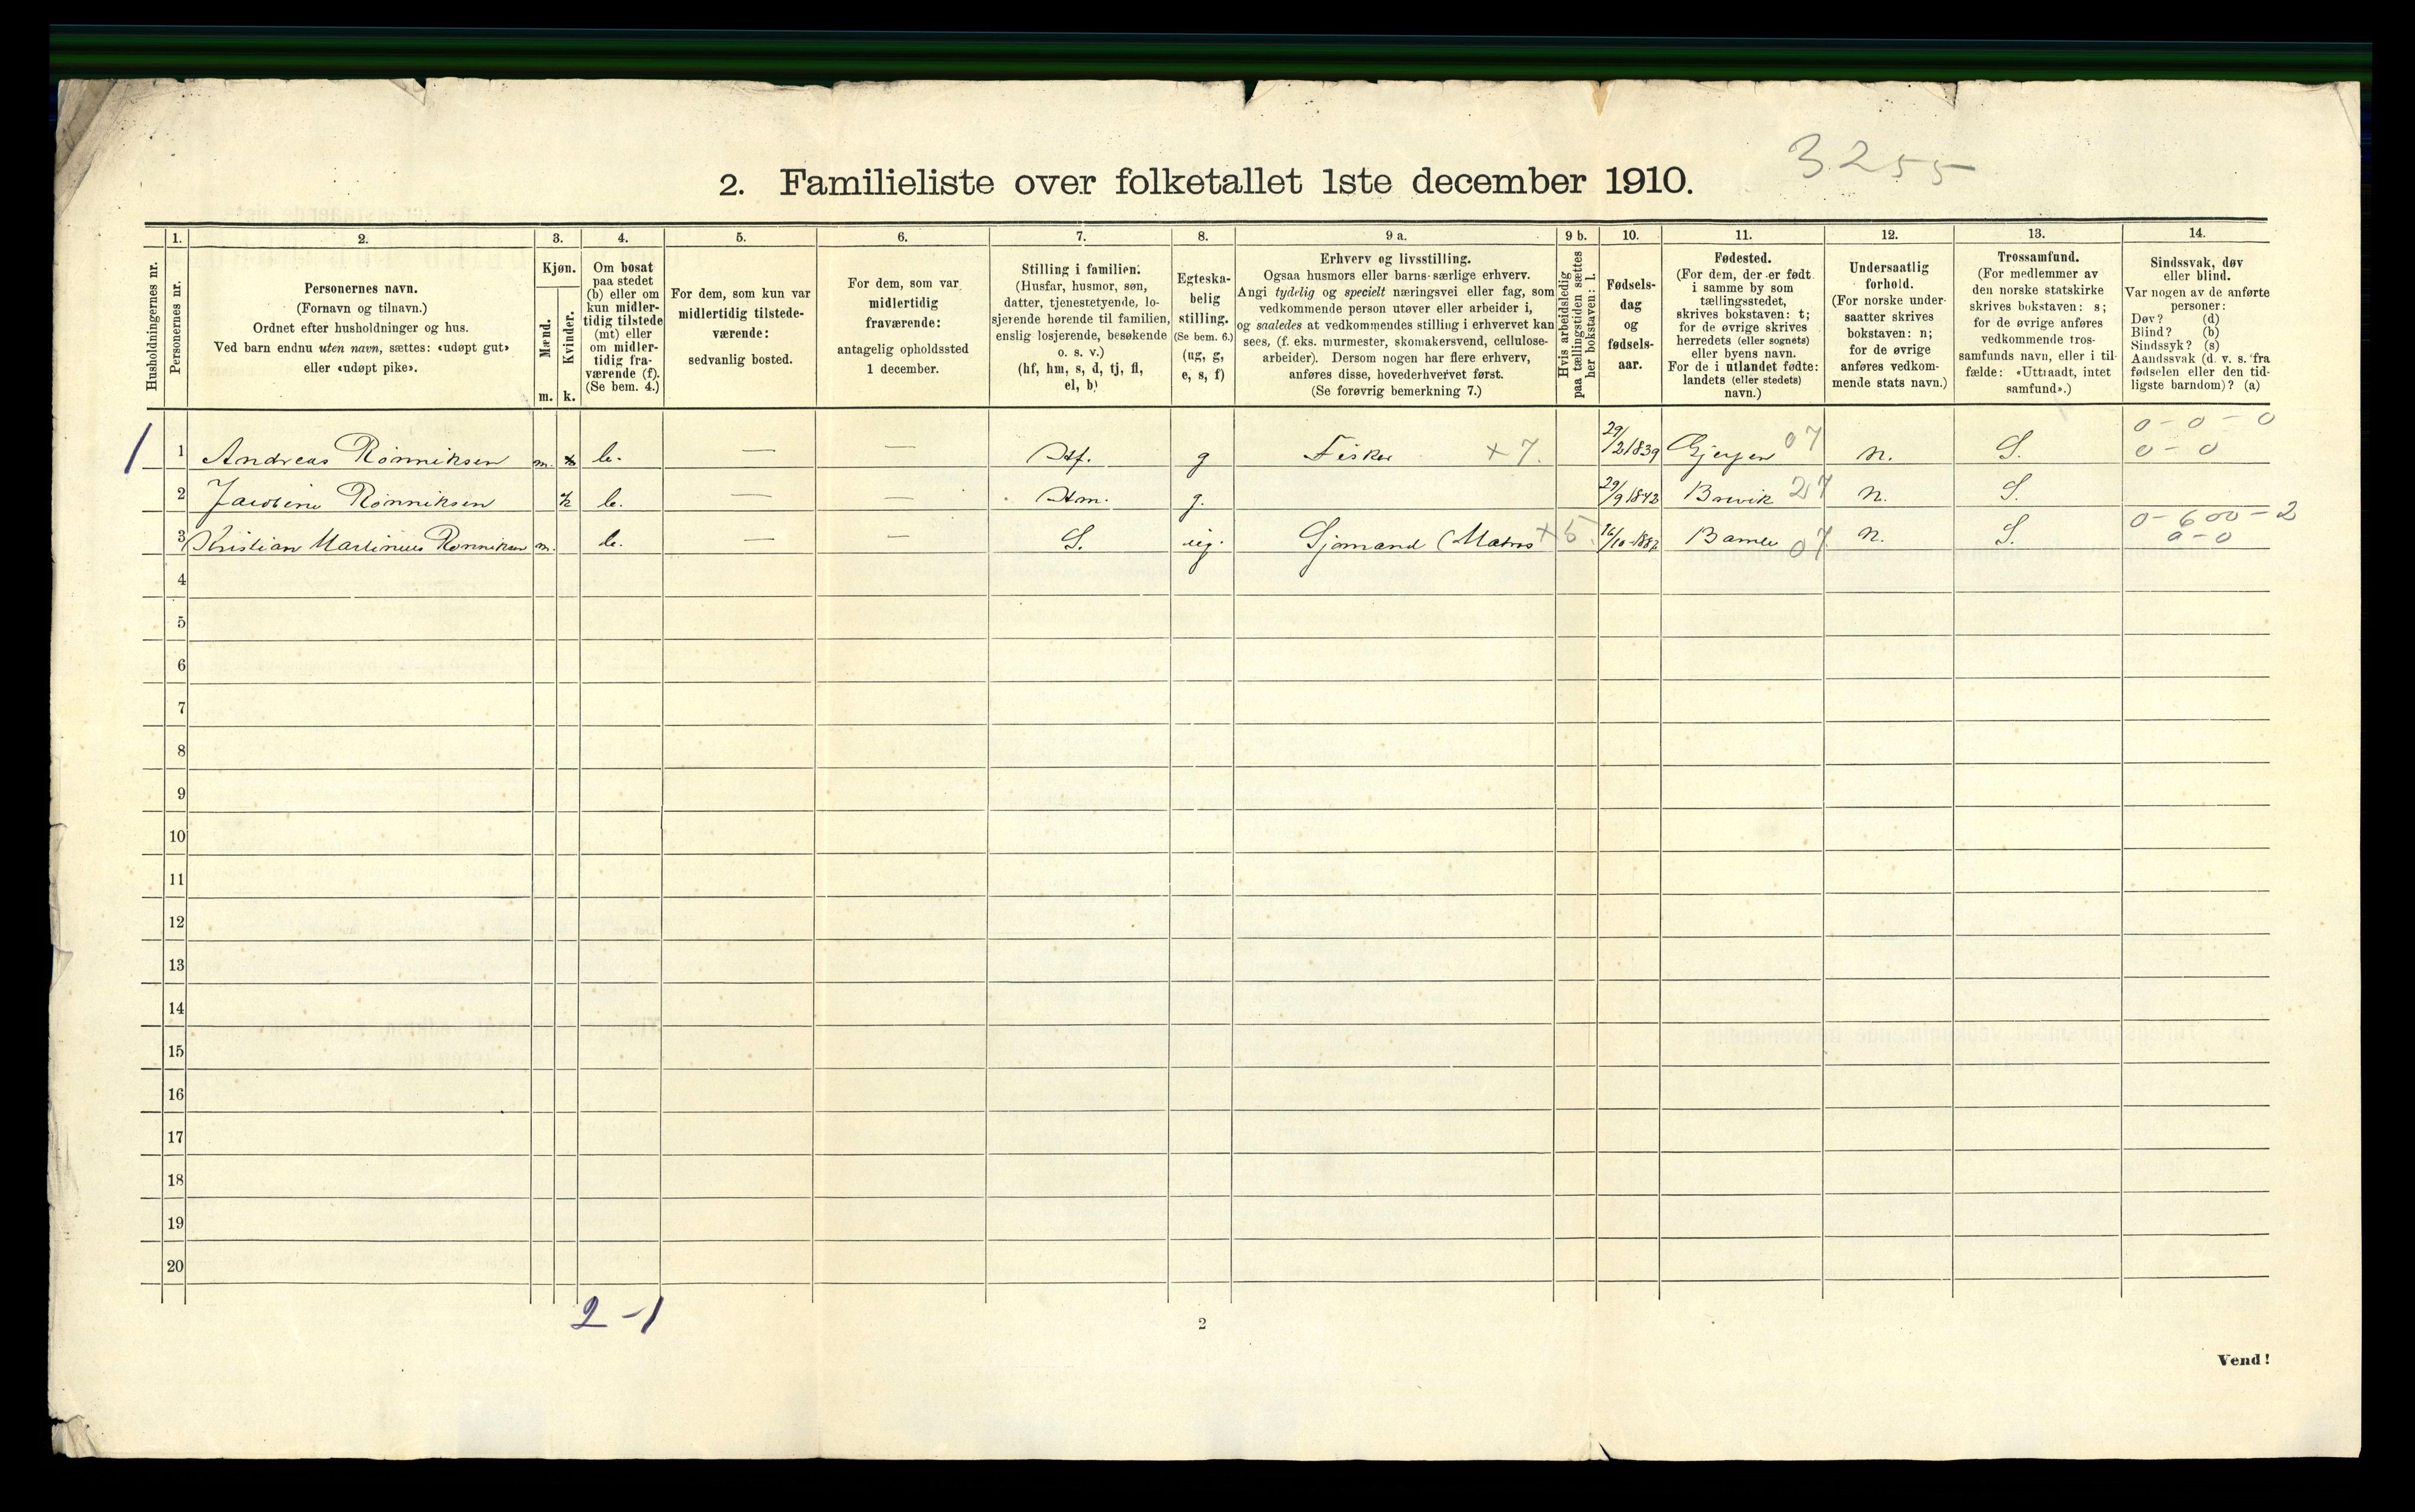 3255
2. Familieliste over folketallet 1ste december 1910.
Husholdningernes nr.
1. Personernes nr.
2. Personernes navn.
(Fornavn og tilnavn.)
Ordnet efter husholdninger og hus.
Ved barn endnu uten navn, sættes: «udøpt gut»
eller «udøpt pike».
3. Kjøn.
Mænd. m.
Kvinder. k.
4. Om bosat
paa stedet
(b) eller om
kun midler-
tidig tilstede
(mt) eller
om midler-
tidig fra-
værende (f).
(Se bem. 4.)
5. For dem, som kun var
midlertidig tilstede-
værende:
sedvanlig bosted.
6. For dem, som var
midlertidig
fraværende:
antagelig opholdssted
1 december.
7. Stilling i familien.
(Husfar, husmor, søn,
datter, tjenestetyende, lo-
sjerende hørende til familien,
enslig losjerende, besøkende
o. s. v.)
(hf, hm, s, d, tj, fl,
el, b)
8. Egteska-
belig
stilling.
(Se bem. 6.)
(ug, g,
e, s, f)
9 a. Erhverv og livsstilling.
Ogsaa husmors eller barns særlige erhverv.
Angi tydelig og specielt næringsvei eller fag, som
vedkommende person utøver eller arbeider i,
og saaledes at vedkommendes stilling i erhvervet kan
sees, (f. eks. murmester, skomakersvend, cellulose-
arbeider). Dersom nogen har flere erhverv,
anføres disse, hovederhvervet først.
(Se forøvrig bemerkning 7.)
9 b. Hvis arbeidsledig
paa tællingstiden sættes
her bokstaven: l.
10. Fødsels-
dag
og
fødsels-
aar.
11. Fødested.
(For dem, der er født
i samme by som
tællingsstedet,
skrives bokstaven: t;
for de øvrige skrives
herredets (eller sognets)
eller byens navn.
For de i utlandet fødte:
landets (eller stedets)
navn.)
12. Undersaatlig
forhold.
(For norske under-
saatter skrives
bokstaven: n;
for de øvrige
anføres vedkom-
mende stats navn.)
13. Trossamfund.
(For medlemmer av
den norske statskirke
skrives bokstaven: s;
for de øvrige anføres
vedkommende tros-
samfunds navn, eller i til-
fælde: «Uttraadt, intet
samfund».)
14. Sindssvak, døv
eller blind.
Var nogen av de anførte
personer:
Døv? (d)
Blind? (b)
Sindssyk? (s)
Aandssvak (d. v. s. fra
fødselen eller den tid-
ligste barndom)? (a)
0 - 0 - 0
1 1 Andreas Rønniksen m. b. — — Hf. g Fisker x 7. 29/2 1839 07 n. S. 0 - 0
2 Jacobine Rønniksen k b. — — Hm. g. 29/9 1842 Brevik 27 n. S.
0 - 600 - 2
3 Kristian Martinius Rønniksen m. b. — — S. ug. Sjømand (Matros x 5. 16/10 Bamle 07 n. S. 0 - 0
4
5
6
7
8
9
10
11
12
13
14
15
16
17
18
19
20
2 - 1
2
Vend!